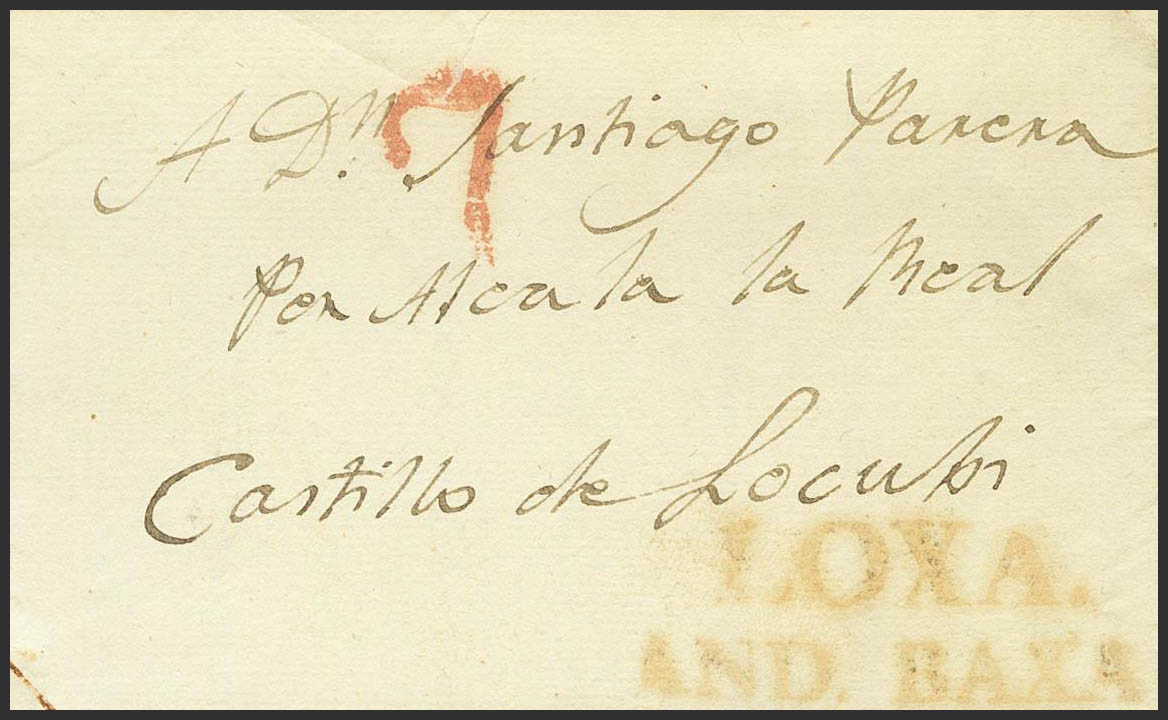 A Dn. Santiago Parera
7
Por Alcala la Real
Castillo de Locubi
LOXA.
AND. BAXA